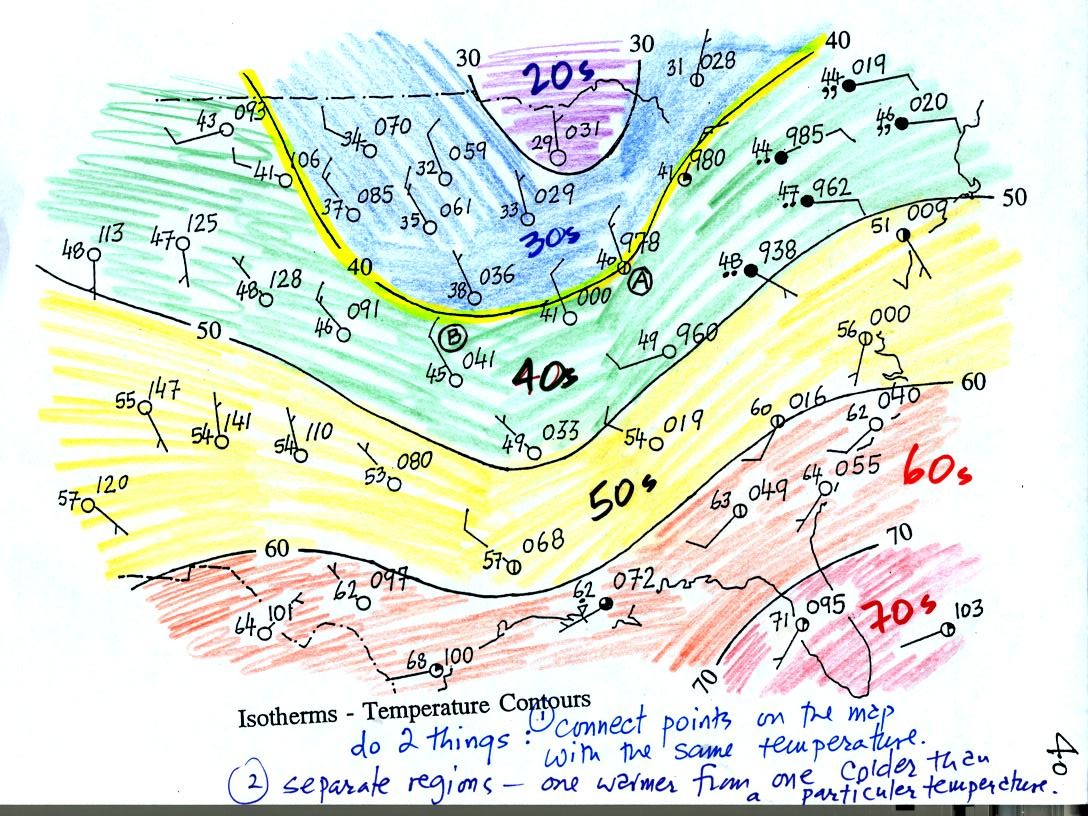 30 30 40
20s
31 028
44 019
43 093
46 020
34 070
29 031
44 985
41 106
32 059
41 980
37 085
35 061
33 029
47 962
50
30s
51 009
48 113
47 125
40 978
A
48 938
40
48 128
38 036
41 000
50
46 091
B
49 960
56 000
45 041
40s
60
55 147
54 141
54 110
49 033
54 019
60 016
62 040
53 080
60s
57 120
50s
63 049
64 055
60
57 068
70
62 097
62 072
64 101
71 095
70s
103
68 100
70
Isotherms - Temperature Contours
do 2 things : ① connect points on the map
with the same temperature.
② separate regions — one warmer from one colder than
a particuler temperature.
40